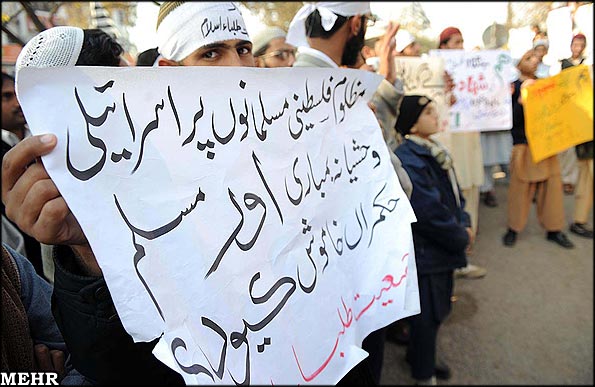 طلباء اسلام
مظلوم فلسطینی مسلمانوں پر اسرائیلی
وحشیانہ بمباری اور مسلم
حکمراں خاموش کیوں؟
جمعیت طلباء
MEHR